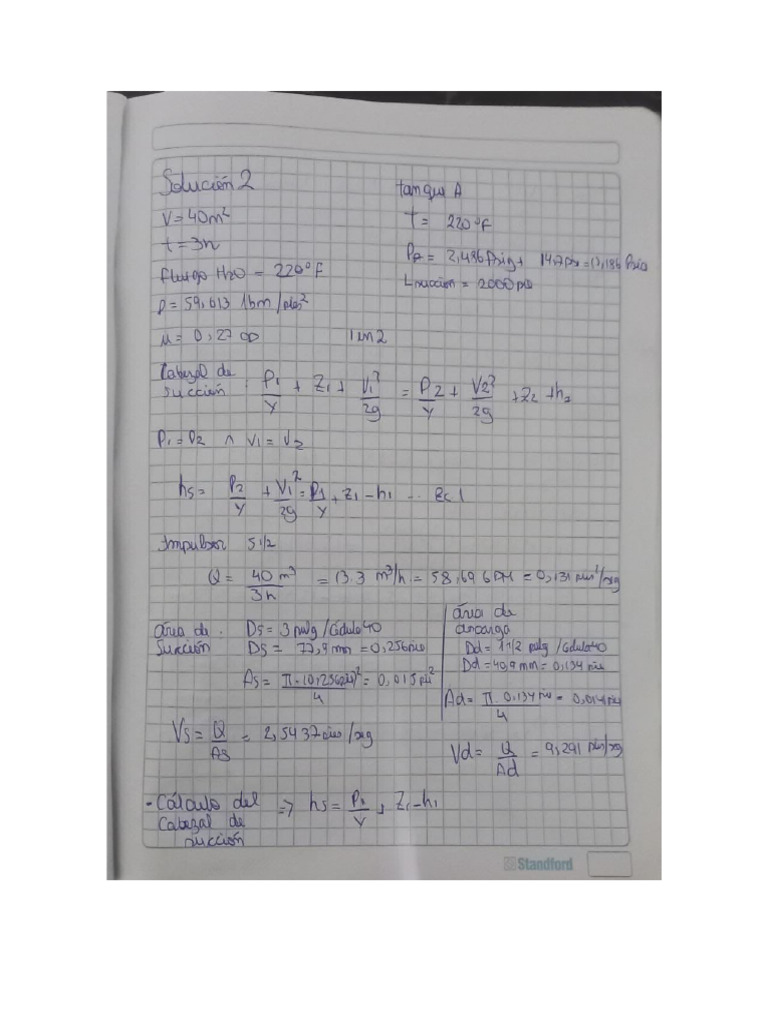 Solución 2
V = 40 m²
t = 3h
Fluido H2O = 220°F
ρ = 59,613 lbm/pies²
μ = 0,27 cp
1 en 2
tanque A
T = 220°F
= 2,486 Psig + 14,7 Psi = 17,186 Psia
L succión = 2000 pie
Cabezal de succión : P1/γ + Z1 + V1²/2g = P2/γ + V2²/2g + Z2 + h2
P1 = P2 ∧ V1 = V2
hs = P2/γ + V1²/2g = P1/γ + Z1 - h1 ... Ec 1
Impulsor 5 1/2
Q = 40 m³/3h = 13.3 m³/h = 58,69 GPM = 0,131 pies³/seg
área de succión
Ds = 3 pulg / Cédula 40
Ds = 77,9 mm = 0,256 pies
As = π·(0,256 pies)²/4 = 0,015 pie²
Vs = Q/As = 2,5437 pies/seg
área de descarga
Dd = 1 1/2 pulg / Cédula 40
Dd = 40,9 mm = 0,134 pie
Ad = π·0,134 pies/4 = 0,014 pies
Vd = Q/Ad = 9,291 pies/seg
- Cálculo del Cabezal de succión ⇒ hs = P1/γ + Z1 - h1
Standford